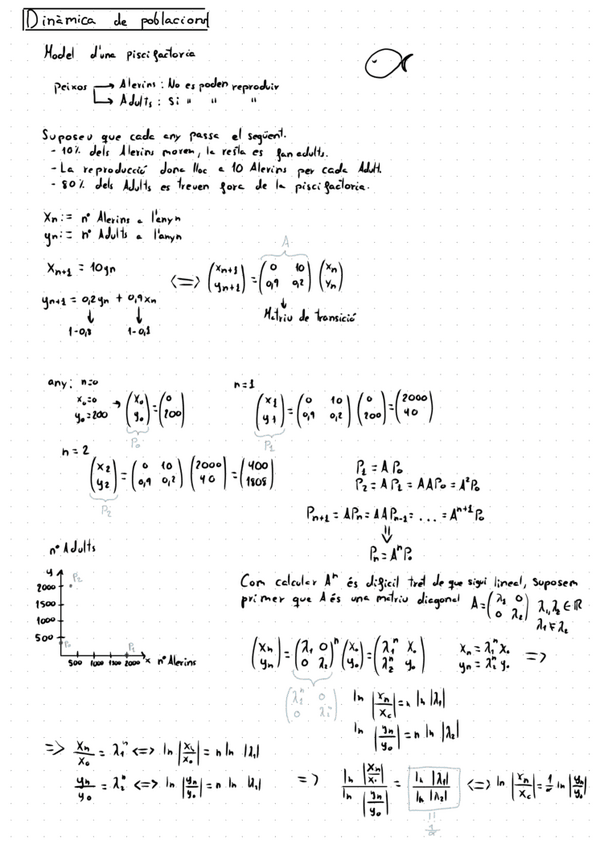 Dinàmica de poblacions
Model d'una piscifactoria
Peixos → Alevins : No es poden reproduir
→ Adults : Si " " "
Suposeu que cada any passa el següent.
- 10% dels Alevins moren, la resta es fan adults.
- La reproducció dona lloc a 10 Alevins per cada Adult.
- 80% dels Adults es treuen fora de la piscifactoria.
Xn := nº Alevins a l'any n
yn := nº Adults a l'any n
A
Xn+1 = 10yn <=> (xn+1 yn+1) = (0 10 0,9 0,2) (xn yn)
yn+1 = 0,2yn + 0,9xn
Matriu de transició
1-0,8 1-0,1
any: n=0 n=1
x0=0 y0=200 → (x0 y0) = (0 200) (x1 y1) = (0 10 0,9 0,2) (0 200) = (2000 40)
P0 P1
n=2
(x2 y2) = (0 10 0,9 0,2) (2000 40) = (400 1808)
P2
P1 = A P0
P2 = A P1 = A A P0 = A²P0
Pn+1 = APn = AAPn-1 = ... = Aⁿ⁺¹P0
⇓
Pn = AⁿP0
nº Adults
y
2000 P2
1500
1000
500
P0 P1
500 1000 1500 2000 x nº Alevins
Com calcular Aⁿ és dificil tret de que sigui lineal, suposem
primer que A és una matriu diagonal A = (λ1 0 0 λ2) λ1, λ2 ∈ ℝ
λ1 ≠ λ2
(xn yn) = (λ1 0 0 λ2)ⁿ (x0 y0) = (λ1ⁿ x0 λ2ⁿ y0) xn = λ1ⁿ x0 yn = λ2ⁿ y0 =>
ln |xn/x0| = n ln |λ1|
ln |yn/y0| = n ln |λ2|
=> xn/x0 = λ1ⁿ <=> ln |xn/x0| = n ln |λ1|
yn/y0 = λ2ⁿ <=> ln |yn/y0| = n ln
=> ln |xn/x0| / ln |yn/y0| = ln |λ1| / ln |λ2| <=> ln |xn/x0| = ln |yn/y0|